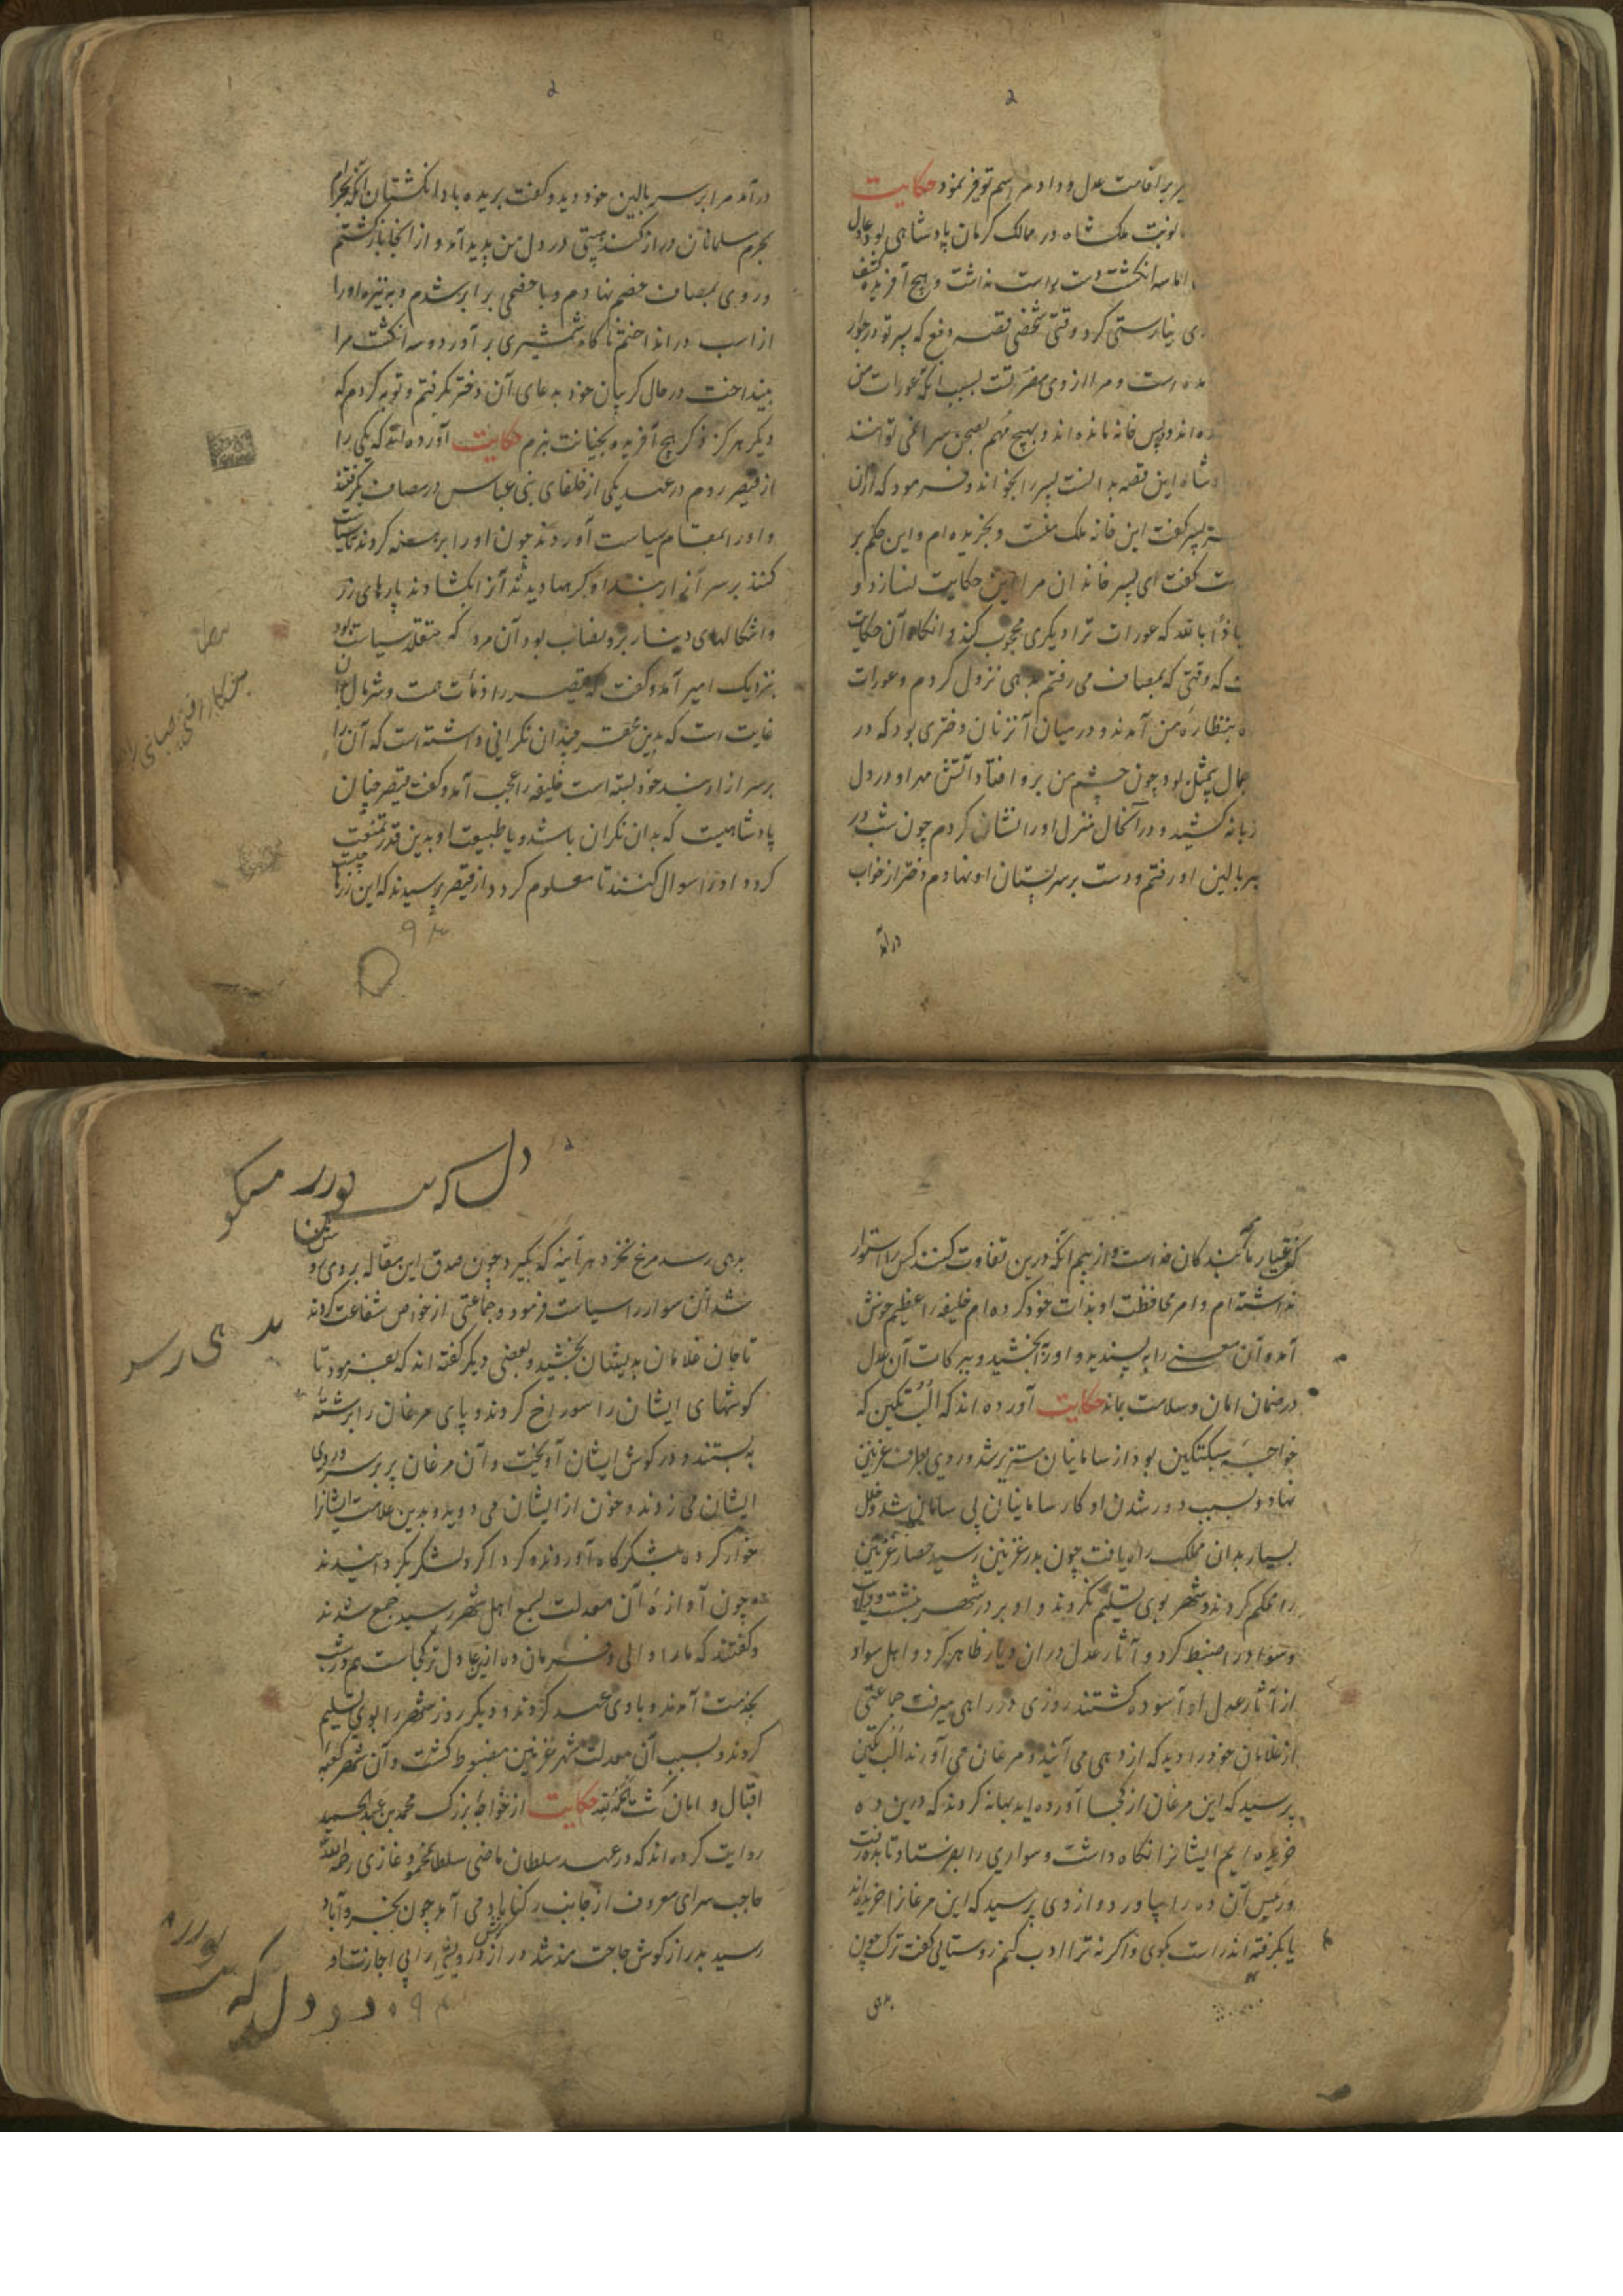 بر اقامت عدل و داد مراسم توفیر نمود حکایت
نوبت ملکشاه در ممالک کرمان پادشاهی بود عادل
اما سه انگشت دست راست نداشت و هیچ آفریده کشف
نیارستی کرد وقتی شخصی قصه رفع که پسر تو در جوار
است و مرا از وی مضرتست بسبب آنکه عورات من
اند و پس خانه مانده اند و بهیچ مهم بصحن سرا نمی توانند
این قصه بدانست پسر را بخواند و فرمود که ازان
پسر گفت این خانه ملک منست و بخریده ام و این حکم بر
گفت ای پسر خاندان مرا این حکایت نسازد و
باید که عورات ترا دیگری محجوب کند و آنگاه آن حکایت
که وقتی که بمصاف می رفتم بدهی نزول کردم و عورات
بنظاره من آمدند و در میان آن زنان دختری بود که در
جمال بیمثل بود چون چشم من برو افتاد آتش مهر او در دل
زبانه کشید و در آنحال منزل او را نشان کردم چون شب در
ببر بالین او رفتم و دست بر سر پستان او نهادم دختر از خواب
درآمد
درآمد مرا بر سر بالین خود دید و گفت بریده باد انگشتان آنکه بحرام
بحرم مسلمانان دراز کند هیبتی در دل من پدید آمد و از آنجا بازگشتم
و روی بمصاف خصم نهادم و با خصمی برابر شدم و به نیزه او را
از اسب در انداختم ناگاه شمشیری برآورد و سه انگشت مرا
بینداخت در حال گریبان خود به دعای آن دختر گرفتم و توبه کردم که
دیگر هرگز ذکر هیچ آفریده بخیانت نبرم حکایت آورده اند که یکی را
از قیصر روم در عهد یکی از خلفای بنی عباس در مصاف بگرفتند
و او را بمقام سیاست آوردند چون او را برهنه کردند تا سیاست
کنند بر سر آزار بند او گرهها دیدند آنرا بگشادند پارهای زر
و اشکالهای دینار برو مضاف بود آن مرد که متقلد سیاست بود
بنزدیک امیر آمد و گفت که قیصر را دنائت همت و شره مال بدان
غایت است که بدین محقر چندان نگرانی داشته است که آن را
بر سر ازار بند خود بسته است خلیفه را عجب آمد و گفت قیصر چنان
پادشاهیست که بدان نگران باشد و یا طبیعت او بدین قدر تمتع
کرد و او را سوال کنند تا معلوم کرد و از قیصر پرسیدند که این زرها چیست
۹۴
بندگان خداست و از بیم آنکه درین تفاوت کنند کس را استوار
نداشته ام و امر محافظت او بذات خود کرده ام خلیفه را عظیم خوش
آمد و آن معنی را به پسندید و او را بخشید و ببرکات آن عدل
در ضمان امان و سلامت بماند حکایت آورده اند که البتکین که
خواجه سبکتکین بود از سامانیان مستزیر شد و روی بطرف غزنین
نهاد و بسبب دور شدن او کار سامانیان بی سامان شد و خلل
بسیار بدان مملکت راه یافت چون بدر غزنین رسید حصار غزنین
را محکم کردند و شهر بوی تسلیم نکردند و او بر در شهر بنشست
و سواد را ضبط کرد و آثار عدل دران دیار ظاهر کرد و اهل سواد
از آثار عدل او آسوده گشتند روزی در راهی میرفت جماعتی
از غلامان خود را دید که از دهی می آیند و مرغان می آورند البتکین
پرسید که این مرغان از کجا آورده اید بهانه کردند که درین ده
خریده ایم ایشانرا نگاه داشت و سواری را بفرستاد تا بده رفت
و رئیس آن ده را بیاورد و از وی پرسید که این مرغانرا خریده اند
یا بگرفته اند راست بگوی و اگر نه ترا ادب کنم روستایی گفت ترک چون
بدهی
بدهی رسد مرغ نخرد هر آینه که بگیرد چون صدق این مقاله بر وی روشن
شد آن سوار را سیاست فرمود و جماعتی از خواص شفاعت کردند
تا جان غلامان بدیشان بخشید و بعضی دیگر گفته اند که بفرمود تا
گوشهای ایشان را سوراخ کردند و پای مرغان را برشته
به بستند و در گوش ایشان آویخت و آن مرغان بر سر و روی
ایشان می زدند و خون از ایشان می دوید و بدین علامت ایشانرا
خوار کرده بلشکرگاه آوردند و گرد اگرد لشکر بگردانیدند
چون آوازه آن معدلت بسمع اهل شهر رسید جمع شدند
و گفتند که ما را والی و فرمان ده ازین عادل تر کجاست هم در شب
بخدمت آمدند و با وی عهد کردند و دیگر روز شهر را بوی تسلیم
کردند و بسبب آن معدلت شهر غزنین مضبوط گشت و آن شهر کعبه
اقبال و امان گشت بحمدالله حکایت از خواجه بزرگ محمد بن عبدالحمید
روایت کرده اند که در عهد سلطان ماضی سلطان محمود غازی رحمه الله
حاجب سرای معروف از جانب رکناباد می آمد چون بخسروآباد
رسید بدرازگوش حاجت مند شد درازگوش درویشی را بی اجازت او